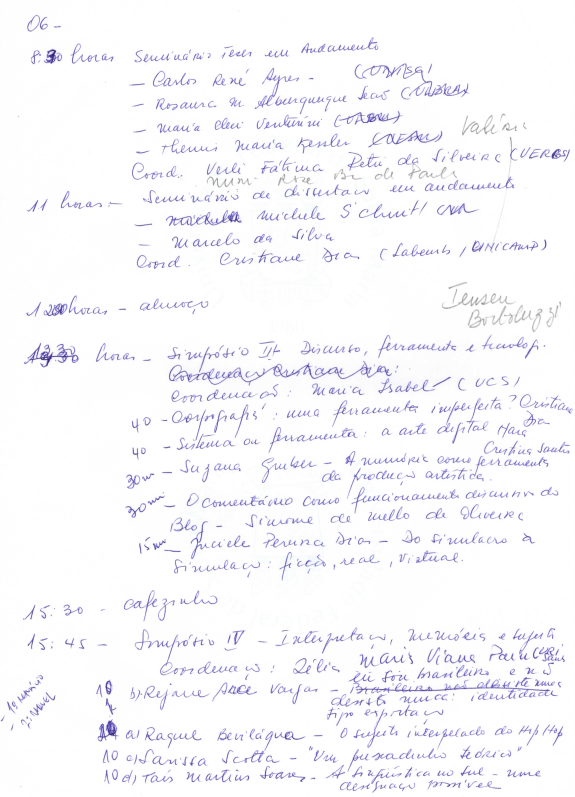 06-
8:30 horas Seminários Teses em Andamento
- Carlos René Ayres -
- Rosaura M. Albuquerque
- Maria Cleci Venturini
- Themis Maria Kessler
Valéria
Coord. Verli Fátima Petri da Silveira
11 horas - Seminário de dissertaço em andamento
- Michele Schmitt
- Marcelo da Silva
Coord. Cristiane Dias (Labeurb, UNICAMP)
horas - almoço
Jensen
Bortoluzzi
horas - Simpósio III Discurso, ferramenta e tecnologi.
Coordenaço Cristiane Dias:
Coordenaço: Maria Isabel (UCS)
40 - Corpografia: uma ferramenta imperfeita? Cristiane Dias
40 - Sistema ou ferramenta: a arte digital Mara
Cristina Santos
30 m - Suzana Gruber - A memória como ferramenta
da produço artistica.
30 mi - O comentário como funcionamento discursivo do
Blog - Simone de Mello de Oliveira
15 m - Juciele Pereira Dias - Do simulacro à
Simulaço: ficço, real, virtual.
15:30 - cafezinho
15:45 - Simpósio IV - Interpretaço, memória e sujeito
Coordenaço: Zélia Maria Viana Paim
eu sou brasileiro e não
10 b) Rejane Arce Vargas - Brasileiro não desiste nunca
desisto nunca: identidade
tipo exportaço
10 a) Raquel Bevilaqua - O sujeito interpelado do Hip Hop
10 c) Larissa Scotta - "Um puxadinho teórico"
10 d) Taís Martins Soares - A linguística no Sul - uma
designaço possível